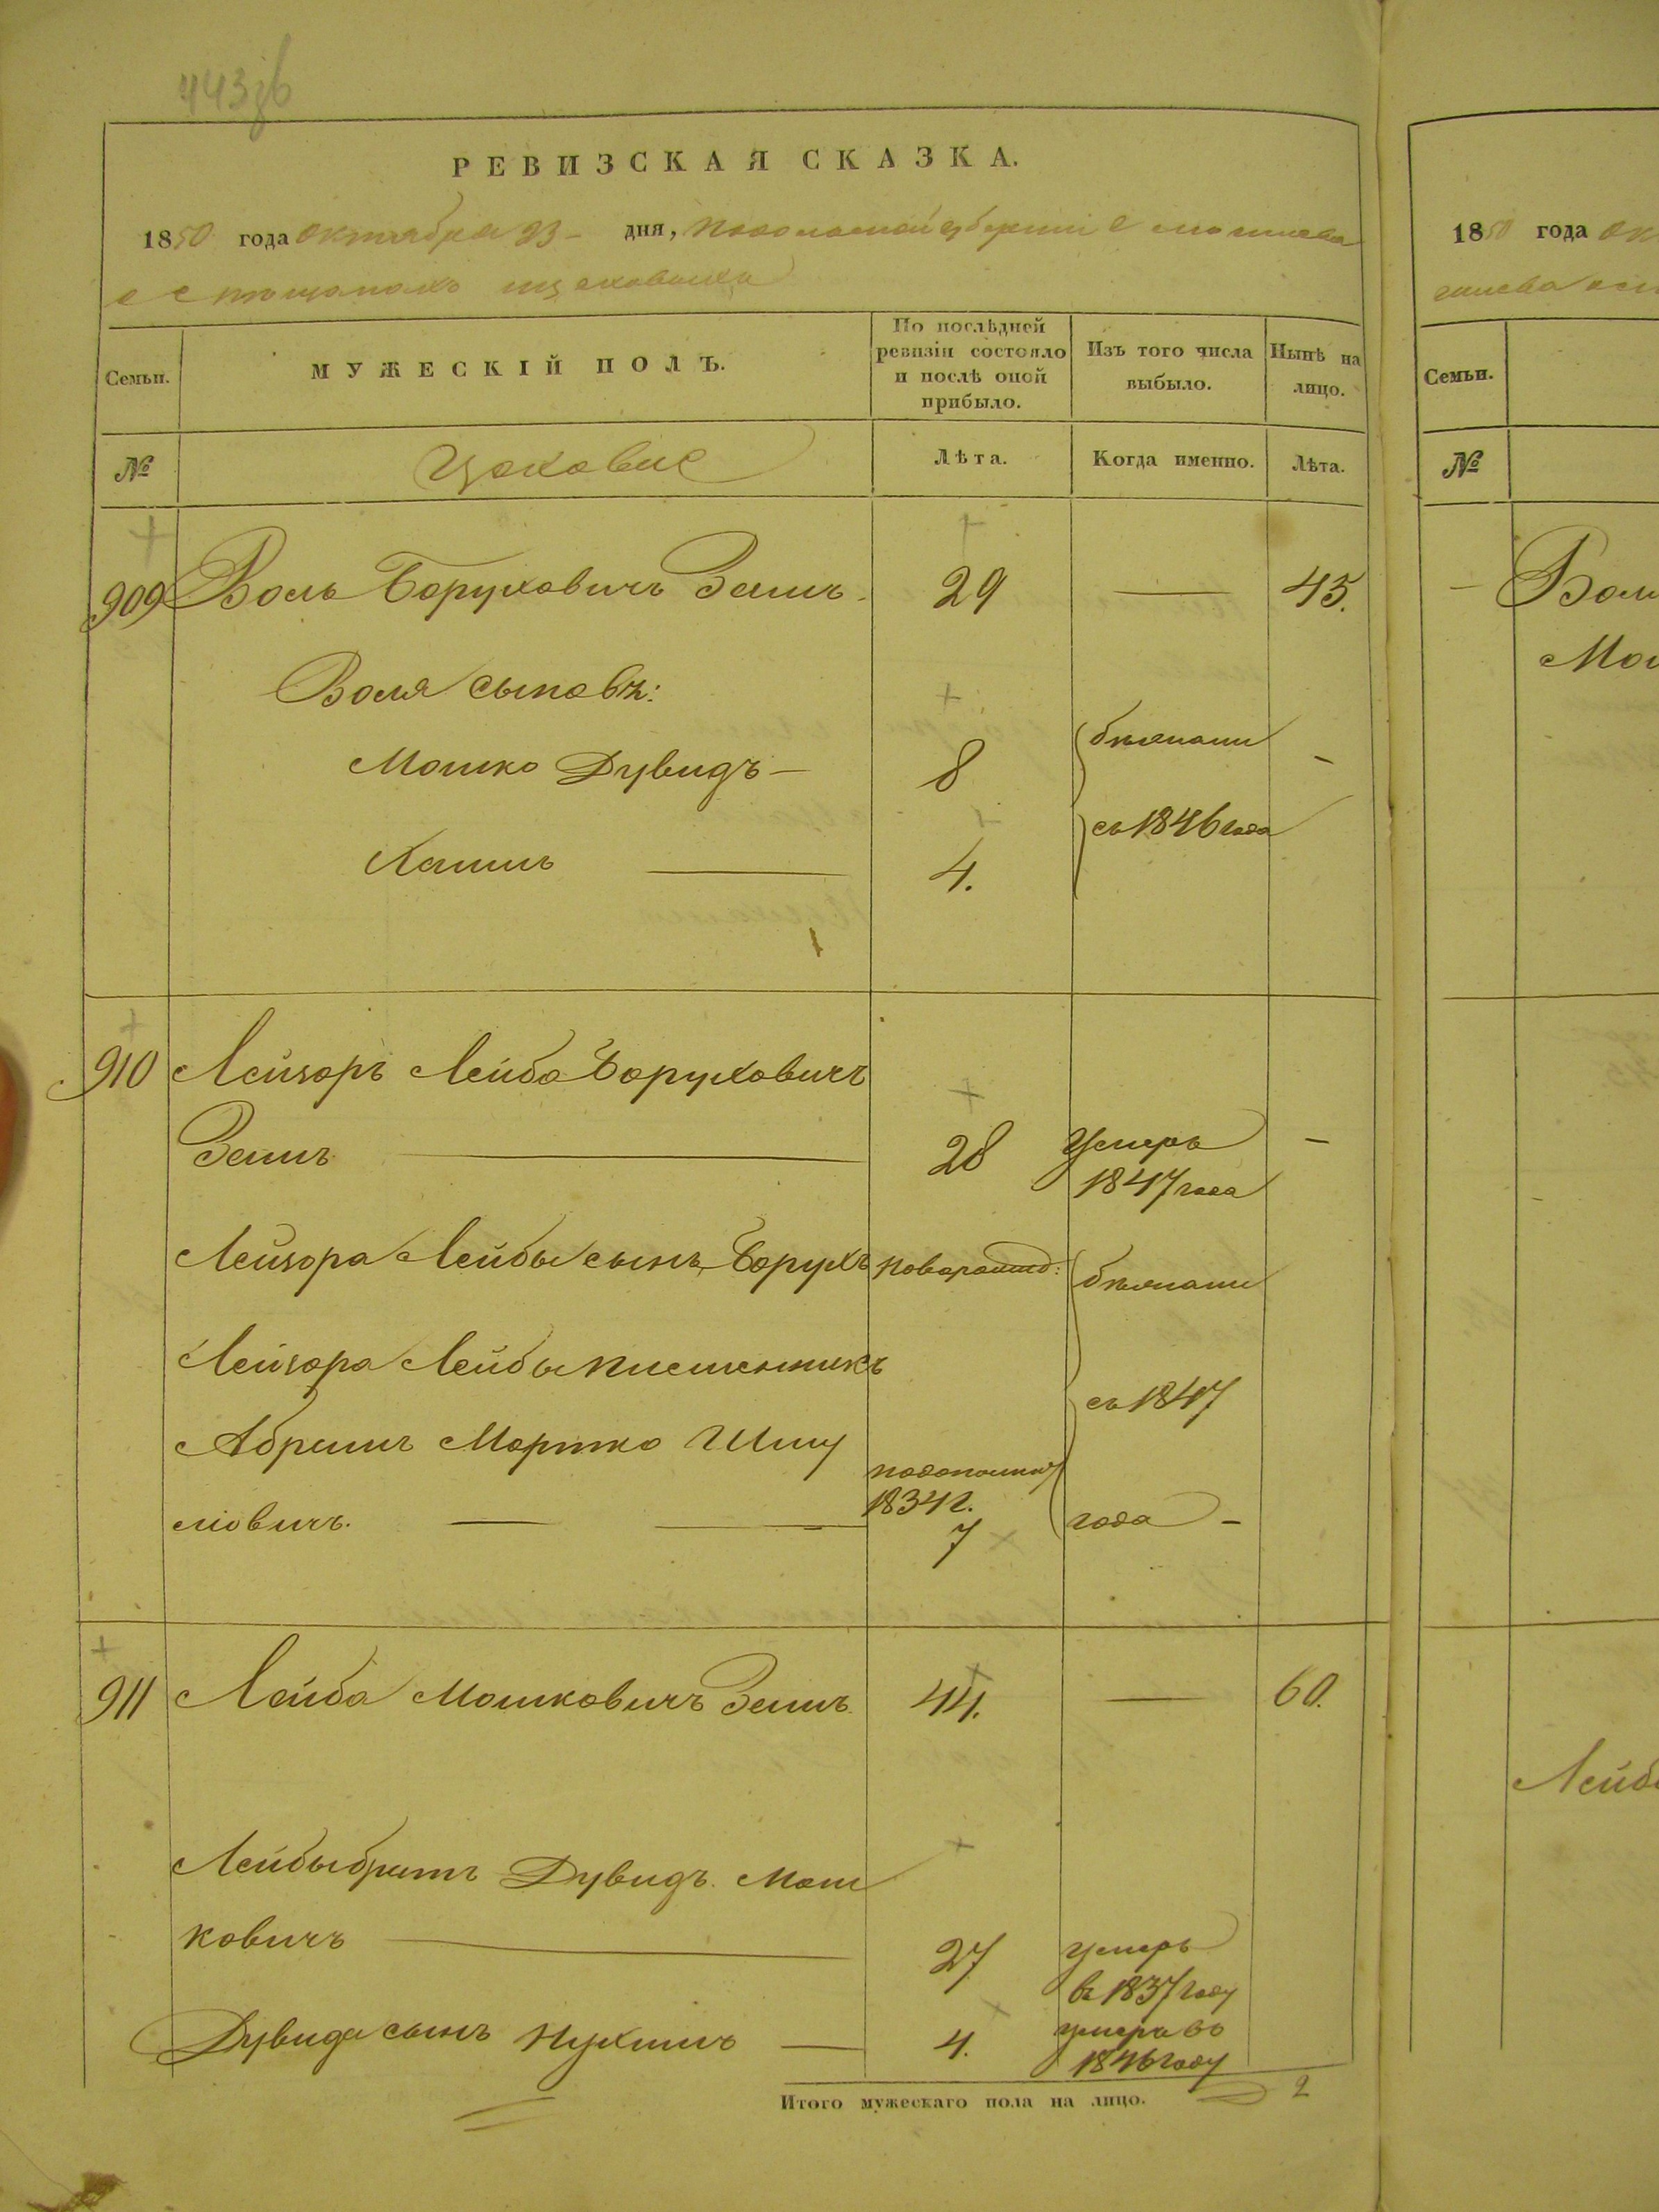 443
РЕВИЗСКАЯ СКАЗКА.
1850 года октября 23 дня, Подольской губерніи
Семьи.
МУЖЕСКІЙ ПОЛЪ.
По послѣдней ревизіи состояло и послѣ оной прибыло.
Изъ того числа выбыло.
Нынѣ на лицо.
№
Лѣта.
Когда именно.
Лѣта.
909 Волъ Боруховичъ 29 — 45.
Воля сыновъ:
Мошко Дувидъ — 8 бѣжали -
4. съ 1846 года
910 Лейзоръ Лейба Боруховичъ
28 Умеръ -
1847 года
Лейзора Лейбы сынъ Борухъ бѣжали
Лейзора Лейбы племенникъ
съ 1847
Абрамъ Мортко Шму
левичъ. — — 1834 г.
7 года -
911 Лейба Мошковичъ 44. — 60.
Лейбы братъ Дувидъ Мош
ковичъ — 27 умеръ
въ 1837 году
Дувида сынъ Нухимъ — 4. умеръ въ
1846 году
Итого мужескаго пола на лицо. 2
1850 года
Семьи.
№